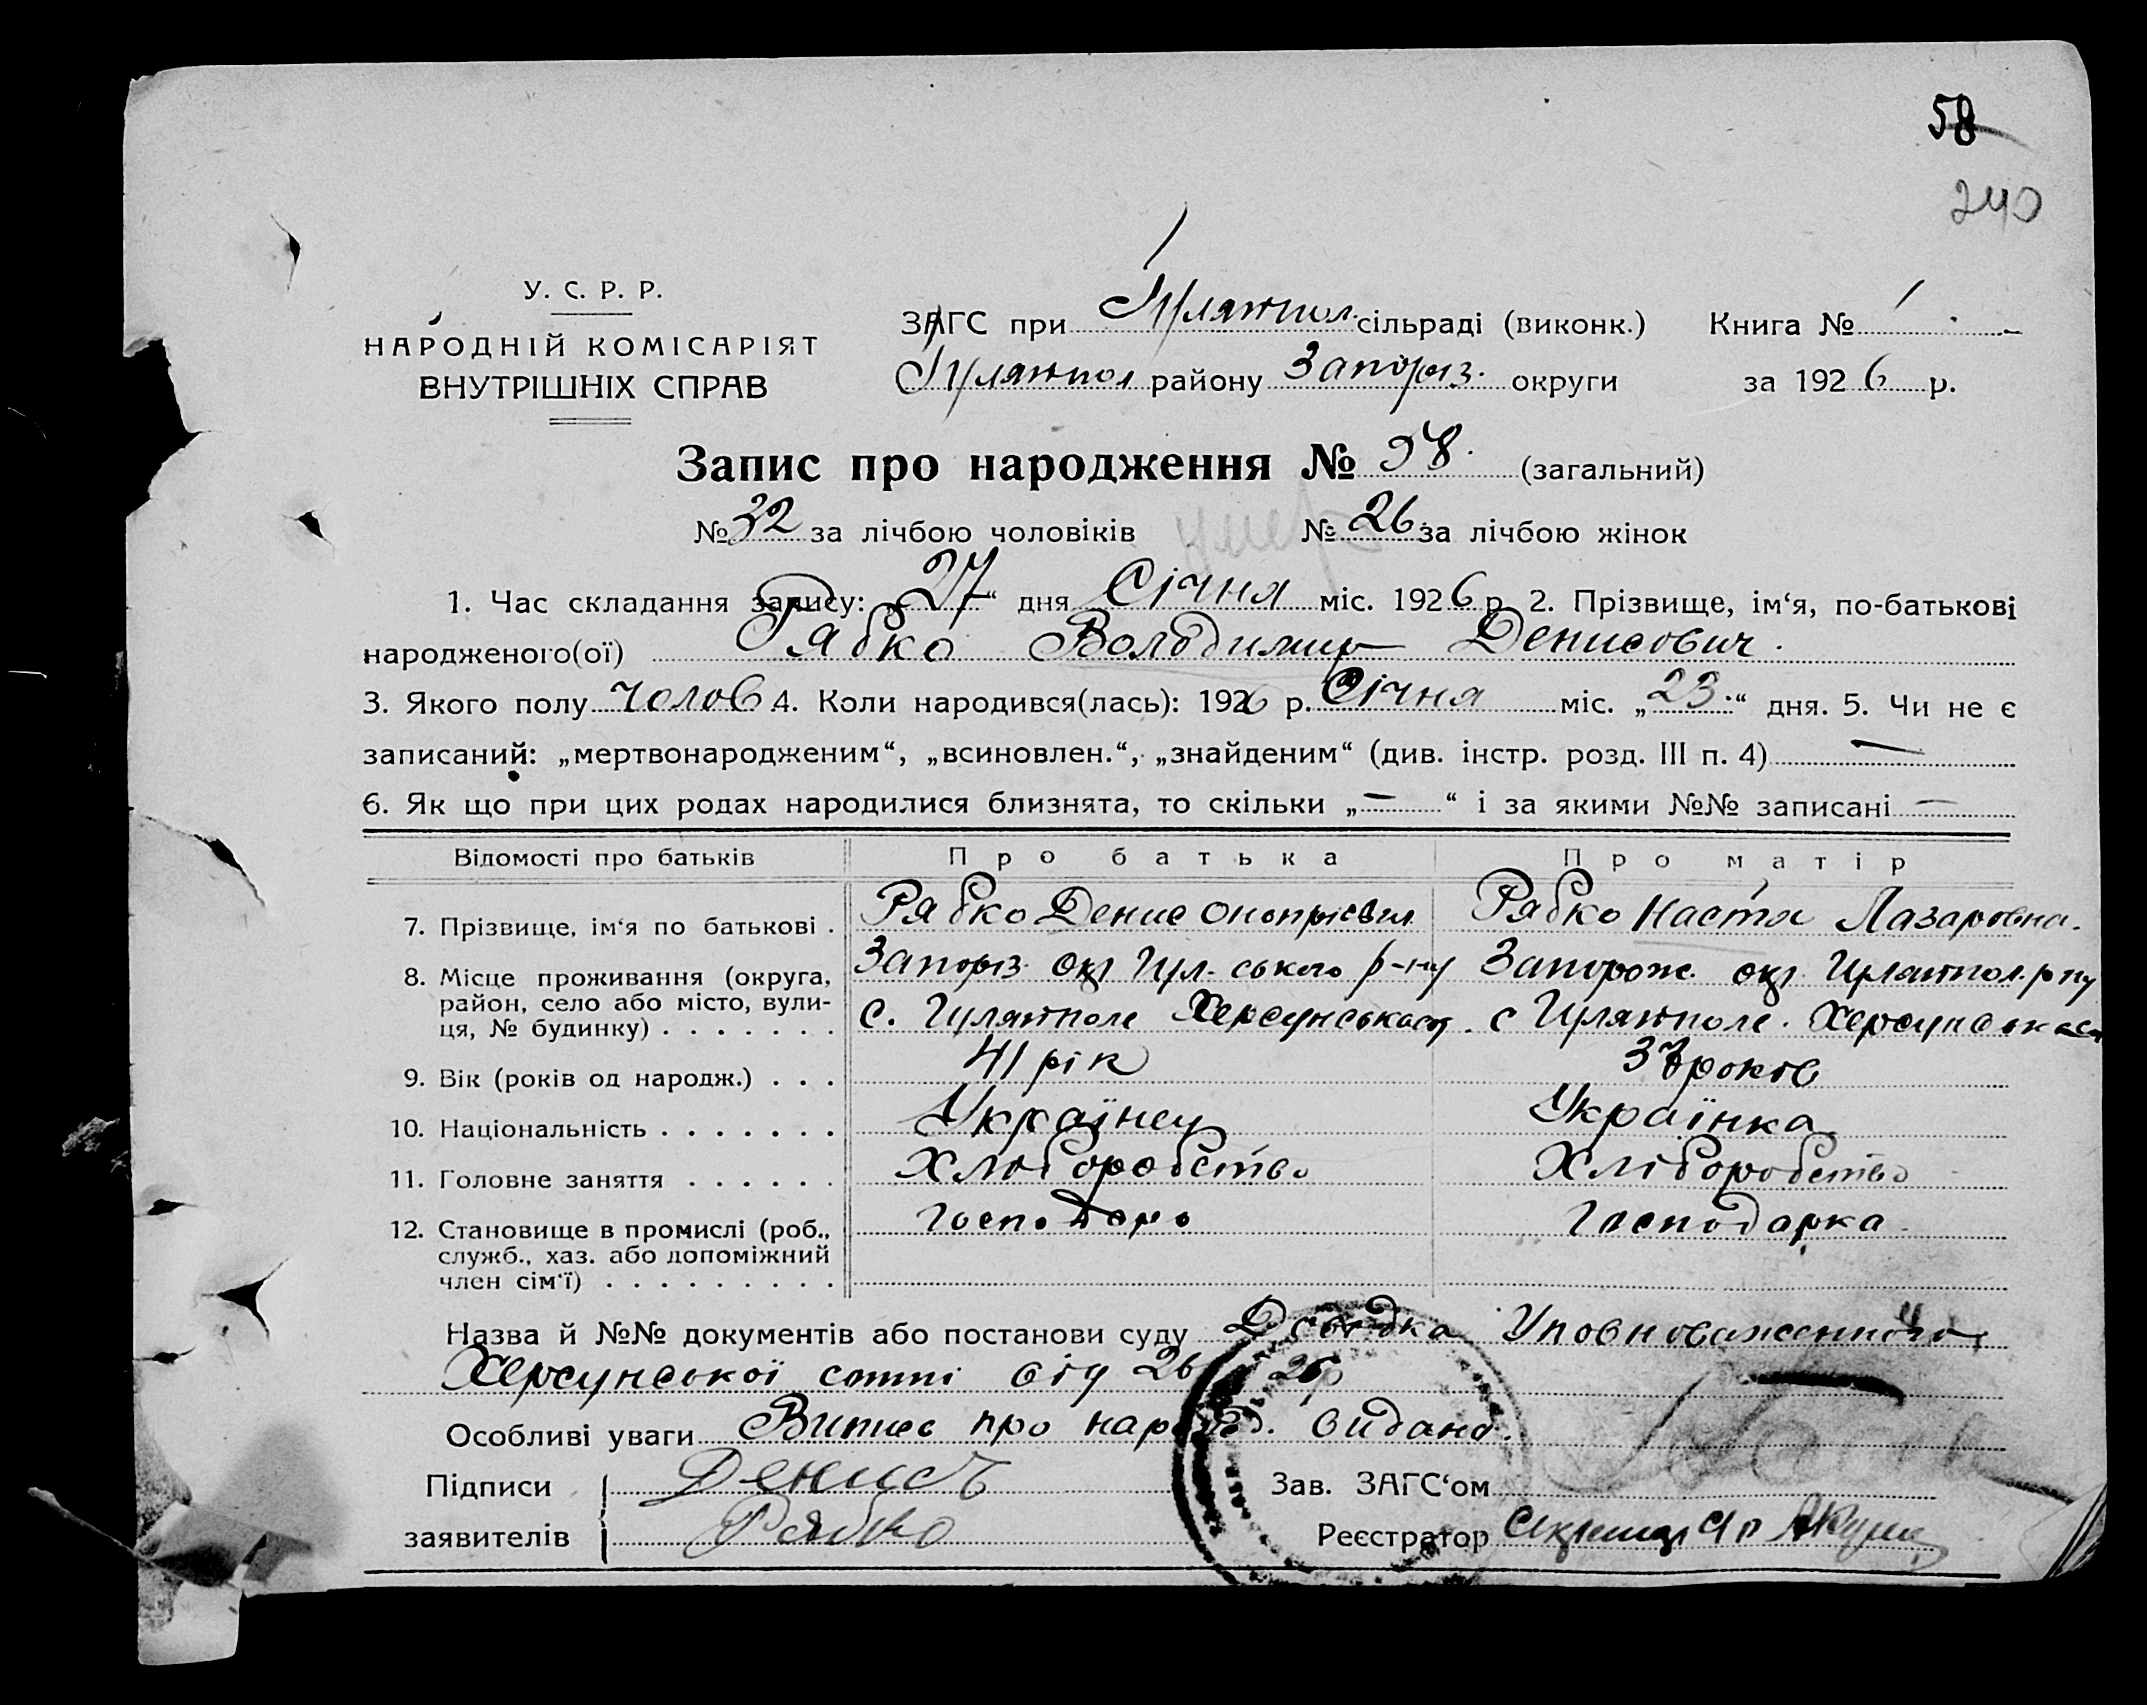 58
240
У. С. Р. Р.
НАРОДНІЙ КОМІСАРІЯТ
ВНУТРІШНІХ СПРАВ
ЗАГС при Гуляйпол. сільраді (виконк.) Книга № 1
Гуляйпол району Запоріз. округи за 1926 р.
Запис про народження № 58. (загальний)
№ 32 за лічбою чоловіків № 26 за лічбою жінок
умер
1. Час складання запису: „27“ дня Січня міс. 1926 р. 2. Прізвище, ім‘я, по-батькові
народженого(ої) Рябко Володимир Денисович.
3. Якого полу Чолов 4. Коли народився(лась): 1926 р. Січня міс. „23.“ дня. 5. Чи не є
записаний: „мертвонародженим“, „всиновлен.“, „знайденим“ (див. інстр. розд. III п. 4) —
6. Як що при цих родах народилися близнята, то скільки „—“ і за якими №№ записані —
Відомості про батьків Про батька Про матір
7. Прізвище, ім‘я по батькові . Рябко Денис Рябко Настя Лазаровна.
8. Місце проживання (округа, район, село або місто, вулиця, № будинку) . . . . . . . Запоріз окр Гул-ського р-ну Запорож. окр Гуляйпол. р ну
с. Гуляйполе с Гуляйполе.
9. Вік (років од народж.) . . . 41 рік 37 років
10. Національність . . . . . . . Українец Українка
11. Головне заняття . . . . . . Хліборобство Хліборобство
12. Становище в промислі (роб., служб., хаз. або допоміжний член сім‘ї) . . . . . . . . . Господарь Господарка
Назва й №№ документів або постанови суду Довідка Уповноваженного
Херсунської сотні від 26
Особливі уваги Випис про народ. видано.
Підписи Денисъ Зав. ЗАГС‘ом
заявителів Рябко Реєстратор